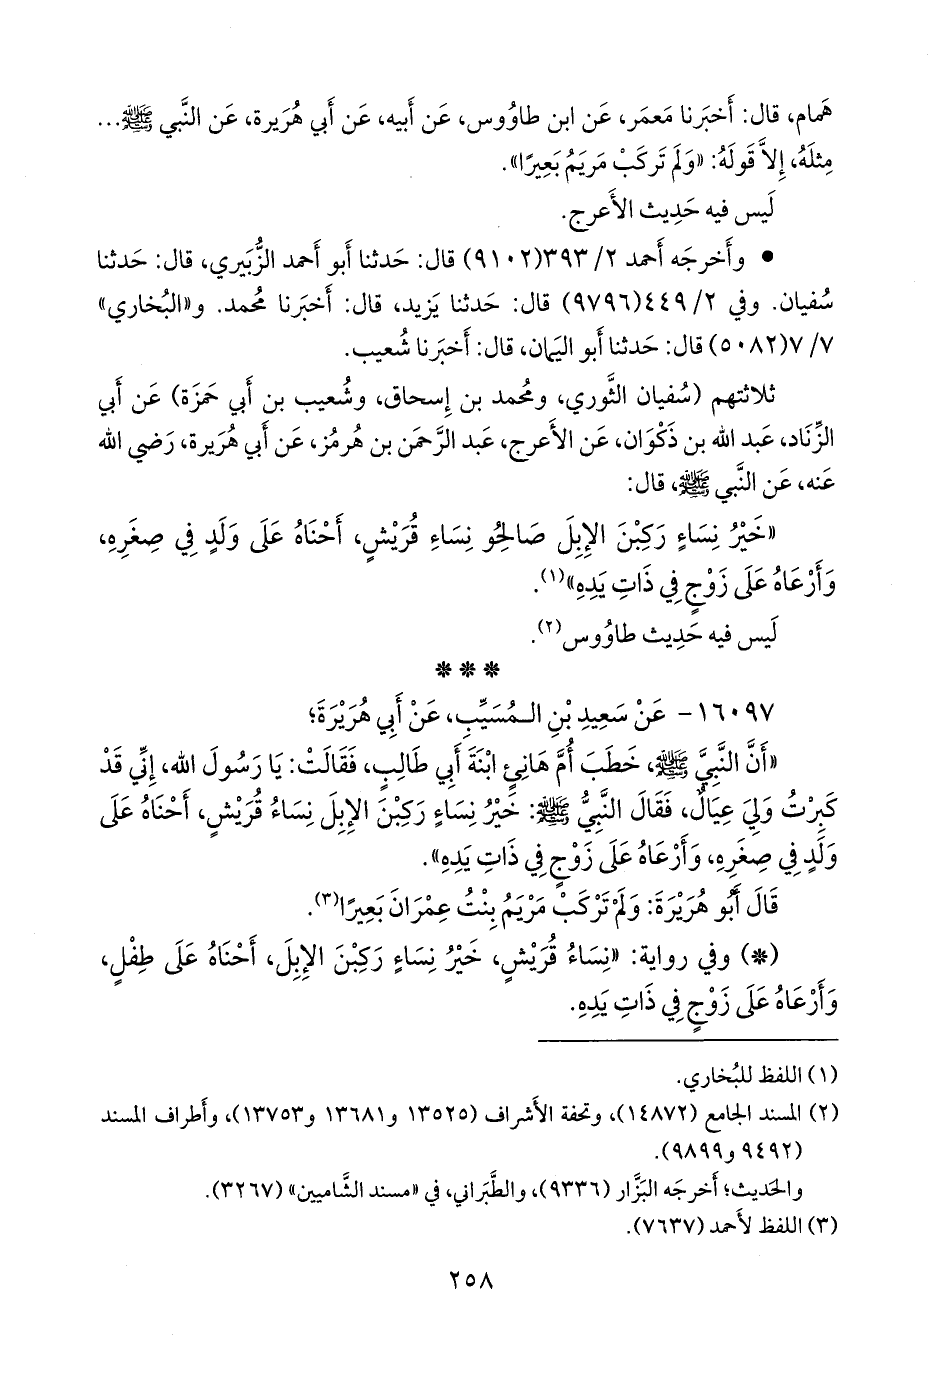 هَمام، قال: أَخبَرنا مَعمَر، عَن ابن طاوُوس، عَن أَبيه، عَن أَبي هُرَيرة، عَن النَّبي ﷺ...
مِثلَهُ، إِلاَّ قَولَهُ: «وَلَم تَركَبْ مَريَمُ بَعِيرًا».
لَيس فيه حَديث الأَعرج.
• وأَخرجَه أَحمد ٢/ ٣٩٣(٩١٠٢) قال: حَدثنا أَبو أَحمد الزُّبَيري، قال: حَدثنا
سُفيان. وفي ٢/ ٤٤٩(٩٧٩٦) قال: حَدثنا يَزيد، قال: أَخبَرنا مُحمد. و«البُخاري»
٧/ ٧(٥٠٨٢) قال: حَدثنا أَبو اليَمان، قال: أَخبَرنا شُعيب.
ثلاثتهم (سُفيان الثَّوري، ومُحمد بن إِسحاق، وشُعيب بن أَبي حَمزَة) عَن أَبي
الزِّناد، عَبد الله بن ذَكْوَان، عَن الأَعرج، عَبد الرَّحمَن بن هُرمُز، عَن أَبي هُرَيرة، رَضي الله
عَنه، عَن النَّبي ﷺ، قال:
«خَيْرُ نِسَاءٍ رَكِبْنَ الإِبِلَ صَالِحُو نِسَاءِ قُرَيْشٍ، أَحْنَاهُ عَلَى وَلَدٍ فِي صِغَرِهِ،
وَأَرْعَاهُ عَلَى زَوْجٍ فِي ذَاتِ يَدِهِ»(١).
لَيس فيه حَديث طاوُوس(٢).
* * *
١٦٠٩٧- عَنْ سَعِيدِ بْنِ الـمُسَيِّبِ، عَنْ أَبِي هُرَيْرَةَ؛
«أَنَّ النَّبِيَّ ﷺ، خَطَبَ أُمَّ هَانِئٍ ابْنَةَ أَبِي طَالِبٍ، فَقَالَتْ: يَا رَسُولَ الله، إِنِّي قَدْ
كَبِرْتُ وَلِيَ عِيَالٌ، فَقَالَ النَّبِيُّ ﷺ: خَيْرُ نِسَاءٍ رَكِبْنَ الإِبِلَ نِسَاءُ قُرَيْشٍ، أَحْنَاهُ عَلَى
وَلَدٍ فِي صِغَرِهِ، وَأَرْعَاهُ عَلَى زَوْجٍ فِي ذَاتِ يَدِهِ».
قَالَ أَبُو هُرَيْرَةَ: وَلَمْ تَرْكَبْ مَرْيَمُ بِنْتُ عِمْرَانَ بَعِيرًا(٣).
(*) وفي رواية: «نِسَاءُ قُرَيْشٍ، خَيْرُ نِسَاءٍ رَكِبْنَ الإِبِلَ، أَحْنَاهُ عَلَى طِفْلٍ،
وَأَرْعَاهُ عَلَى زَوْجٍ فِي ذَاتِ يَدِهِ.
(١) اللفظ للبُخاري.
(٢) المسند الجامع (١٤٨٧٢)، وتحفة الأَشراف (١٣٥٢٥ و١٣٦٨١ و١٣٧٥٣)، وأَطراف المسند
(٩٤٩٢ و٩٨٩٩).
والحَديث؛ أَخرجَه البَزَّار (٩٣٣٦)، والطَّبَراني، في «مسند الشَّاميين» (٣٢٦٧).
(٣) اللفظ لأَحمد (٧٦٣٧).
٢٥٨